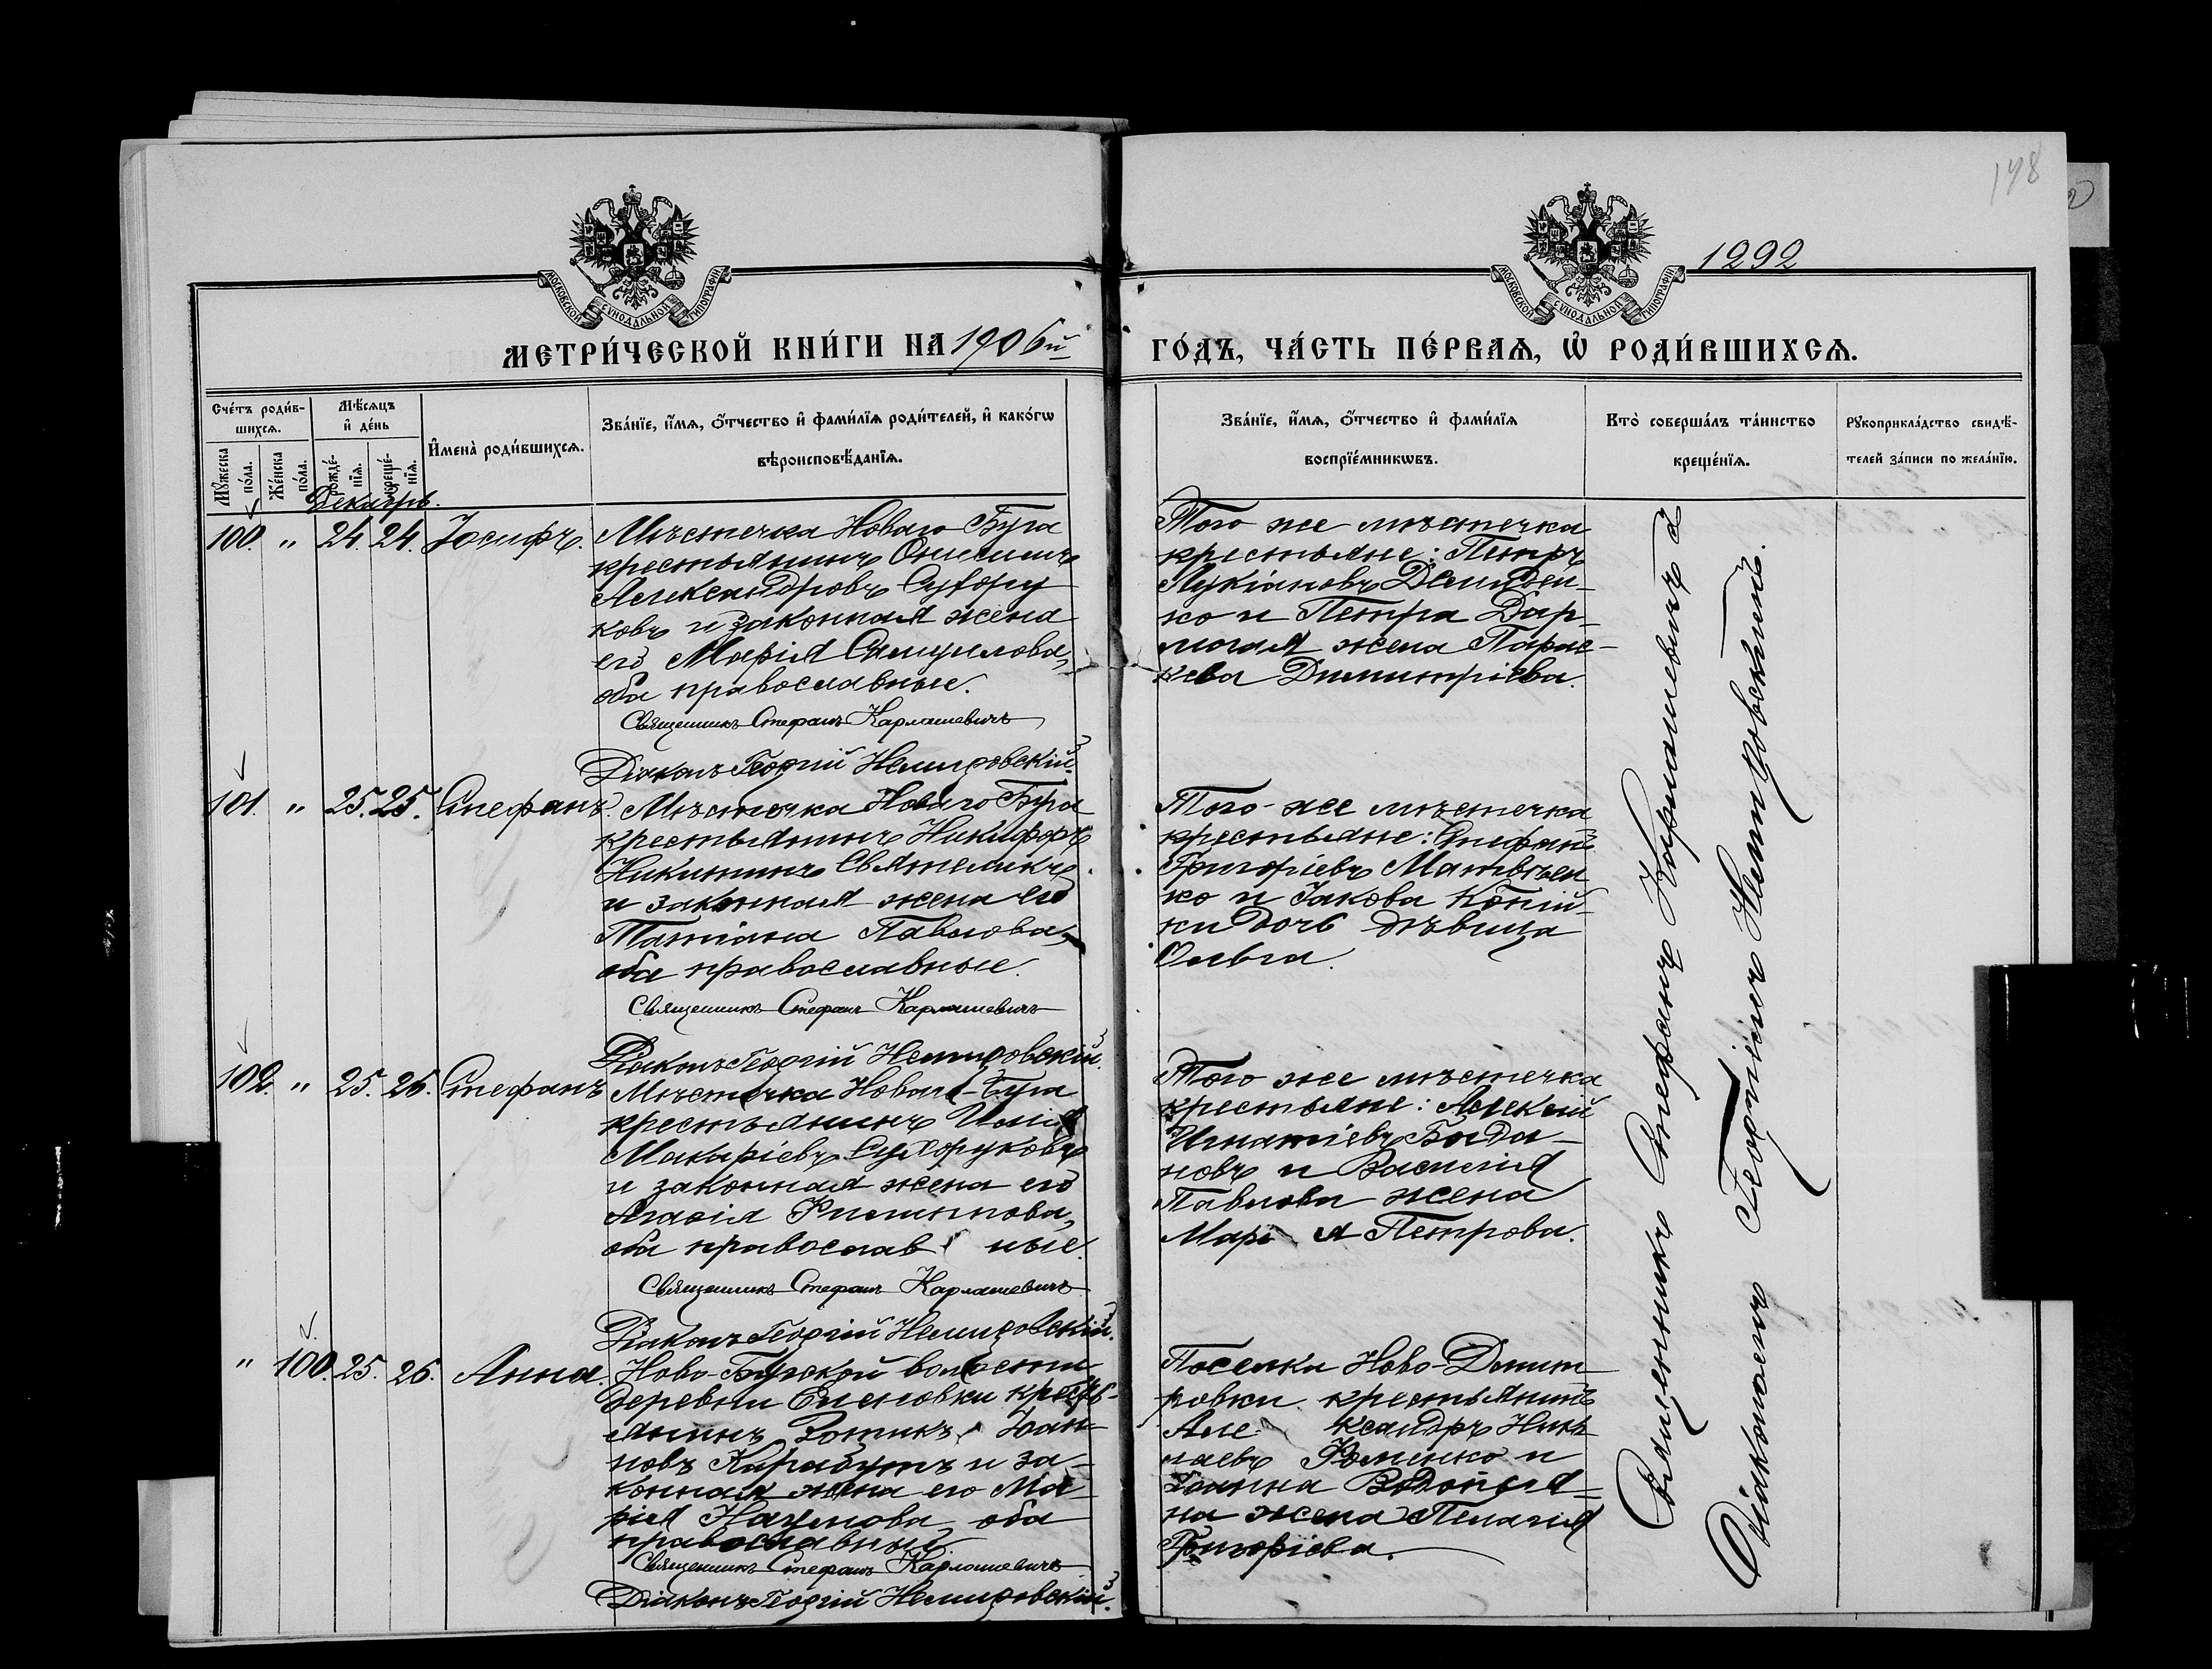 148
1292
МОСКОВСКОЙ СУНОДАЛЬНОЙ ТИПОГРАФІИ
МОСКОВСКОЙ СУНОДАЛЬНОЙ ТИПОГРАФІИ
МЕТРИ́ЧЕСКОЙ КНИ́ГИ НА 1906й
ГО́ДЪ, ЧА́СТЬ ПЕ́РВАѦ, Ѡ҆ РОДИ́ВШИХСѦ.
Сче́тъ роди́в-
шихсѧ.
Мꙋ́жеска по́ла.
Же́нска по́ла.
Мѣ́сѧцъ
и҆ де́нь
рожде́-
нїѧ.
креще́-
нїѧ.
И҆мена̀ роди́вшихсѧ.
Зва́нїе, и҆́мѧ, ѻ҆́тчество и҆ фами́лїѧ роди́телей, и҆ како́гѡ
вѣроисповѣ́данїѧ.
Зва́нїе, и҆́мѧ, ѻ҆́тчество и҆ фами́лїѧ
воспрїе́мникѡвъ.
Кто̀ соверша́лъ та́инство
креще́нїѧ.
Рꙋкоприкла́дство свидѣ́-
телей за́писи по жела́нїю.
Декабрь.
100. " 24. 24. Іосифъ.
Мѣстечка Новаго Буга
крестьянинъ Онисимъ
Александровъ Сухору
ковъ и законная жена
его Марія Самуилова,
оба православные.
Священникъ Стефанъ Карлашевичъ
Діаконъ Георгій Немировскій.
Того же мѣстечка
крестьяне: Петръ
Лукіановъ Демиден-
ко и Петра Дар-
могая жена Парас-
кева Димитріева.
101. " 25. 25. Стефанъ.
Мѣстечка Новаго Буга
крестьянинъ Никифоръ
Никитинъ Святеликъ
и законная жена его
Татіана Павлова,
оба православные.
Священникъ Стефанъ Карлашевичъ
Діаконъ Георгій Немировскій.
Того-же мѣстечка
крестьяне: Стефанъ
Григоріевъ Матвѣен
ко и Іакова Копій-
ки дочь дѣвица
Ольга.
102. " 25. 26. Стефанъ
Мѣстечка Новаго-Буга
крестьянинъ Илія
Макаріевъ Сухоруковъ
и законная жена его
Агафія Филиппова,
оба православ ные.
Священникъ Стефанъ Карлашевичъ
Діаконъ Георгій Немировскій.
Того же мѣстечка
крестьяне: Алексій
Игнатіевъ Богда-
новъ и Василія
Павлова жена
Марі я Петрова.
" 100. 25. 26. Анна.
Ново-Бугской волости
деревни Еленовки кресть-
янинъ Зотикъ Іоан
новъ Карабутъ и за-
конная жена его Ма-
рія Наумова оба
православные.
Священникъ Стефанъ Карлашевичъ
Діаконъ Георгій Немировскій.
Поселка Ново-Димит
ровки крестьянинъ
Але ксандръ Нико
лаевъ Фоменко и
Іоанна
на жена Пелагія
Григоріева.
Священникъ Стефанъ Карлашевичъ с
Діакономъ Георгіемъ Немировскимъ.